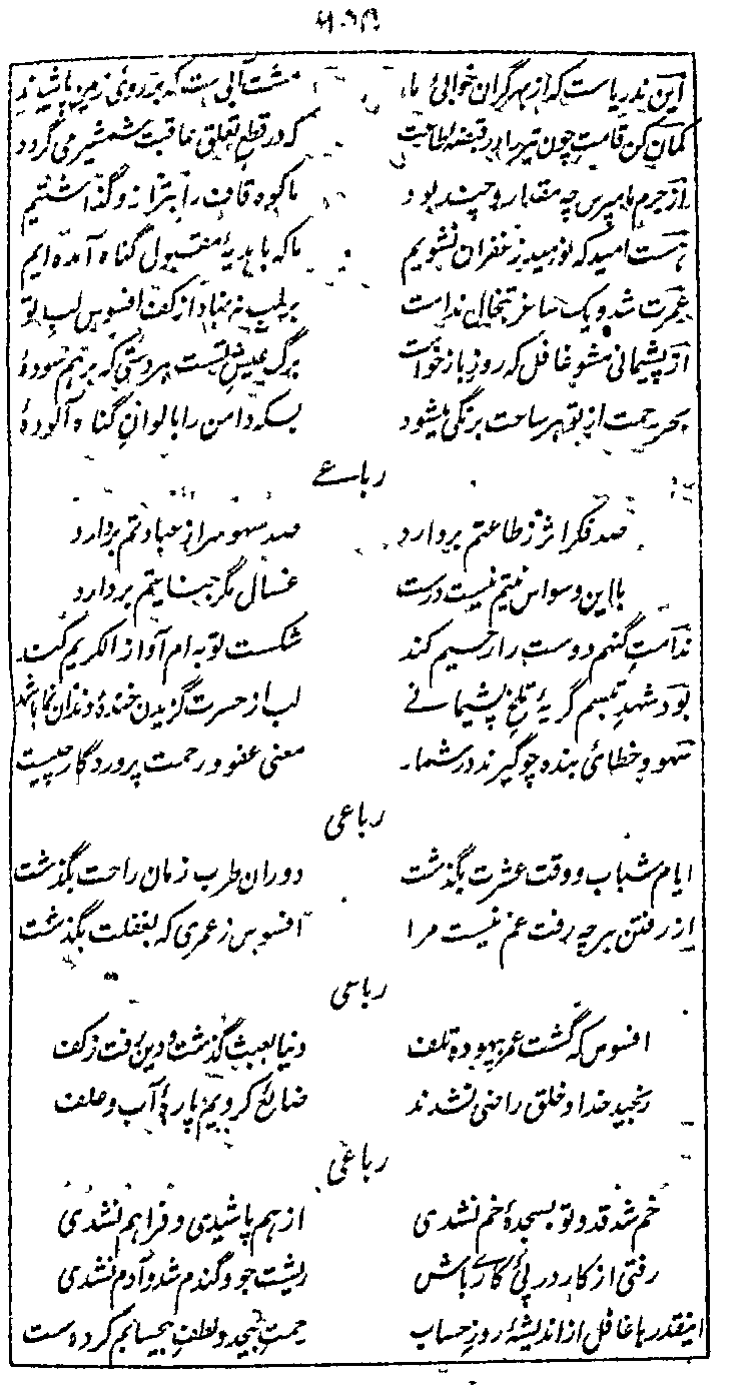 این ندریاست که از بهر گران خوابی ما مشت آبی است که بر روی زمین پاشیدند
کمان کن قامت چون تیر را در قبضه طاعت که در قطع تعلق عاقبت شمشیر می گردد
از جرم ما مپرس چه مقدار و چند بود ما کوه قاف را بترازو گذاشتیم
هست امید که نومید ز غفران نشویم ما که با هدیهٔ مقبول گناه آمده ایم
عمرت شد و یک ساغر تبخال ندامت بر لب ننهاد از کف افسوس لب تو
از پشیمانی مشو غافل که روز بازخواست برگ عیش تست هر دستی که برهم سودهٔ
بحر رحمت از تو هر ساعت برنگی میشود بسکه دامن را بالوان گناه آلودهٔ
رباعے
صد فکر اثر ز طاعتم بردارد صد سهو سر از عبادتم بردارد
با این وسواس نیتم نیست درست غسال مگر جنابتم بردارد
ندامت گنهم دوست را رحیم کند شکست توبه ام آواز الکریم کند
بود شهد تبسم گریهٔ تلخ پشیمانے لب از حسرت گزیدن خندهٔ دندان نما باشد
سهو و خطائ بنده چو گیرند در شمار معنی عفو و رحمت پروردگار چیست
رباعی
ایام شباب و وقت عشرت بگذشت دوران طرب زمان راحت بگذشت
از رفتن هرچه رفت غم نیست مرا افسوس ز عمری که بغفلت بگذشت
رباعی
افسوس که گشت عمر بیهوده تلف دنیا بعبث گذشت و دین رفت ز کف
رنجید خدا و خلق راضی نشدند ضائع کردیم پارهٔ آب و علف
رباعی
خم شد قد و تو بسجدهٔ خم نشدی از هم پاشیدی و فراهم نشدی
رفتی از کار در پئ کارے باش ریشت جو و گندم شد و آدم نشدی
اینقدر ها غافل از اندیشهٔ روز حساب رحمت بیحد و لطف بیحسابم کرده ست